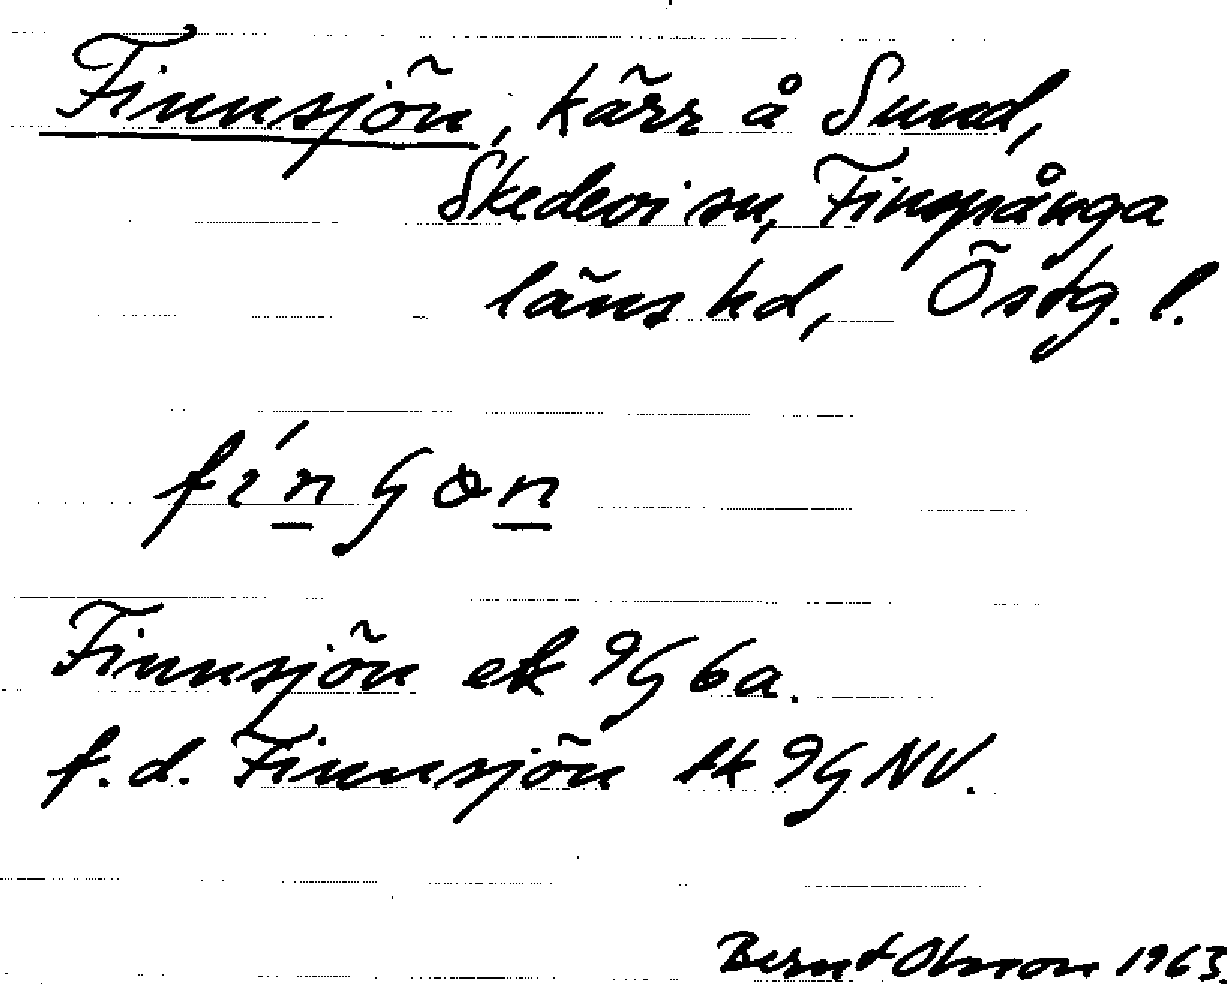 Finnsjön, kärr å Sund,
Skedevi sn, Finspånga
läns hd, Östg. l.
Finnsjön ek 9G 6a.
f.d. Finnsjön tk 9G NV.
Bernt Olsson 1963.